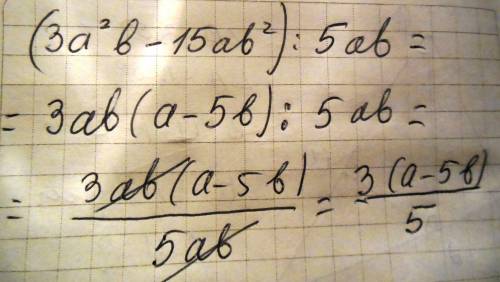 (3a²b − 15ab²) : 5ab =
= 3ab(a − 5b) : 5ab =
= 3ab(a − 5b) / 5ab = 3(a − 5b) / 5